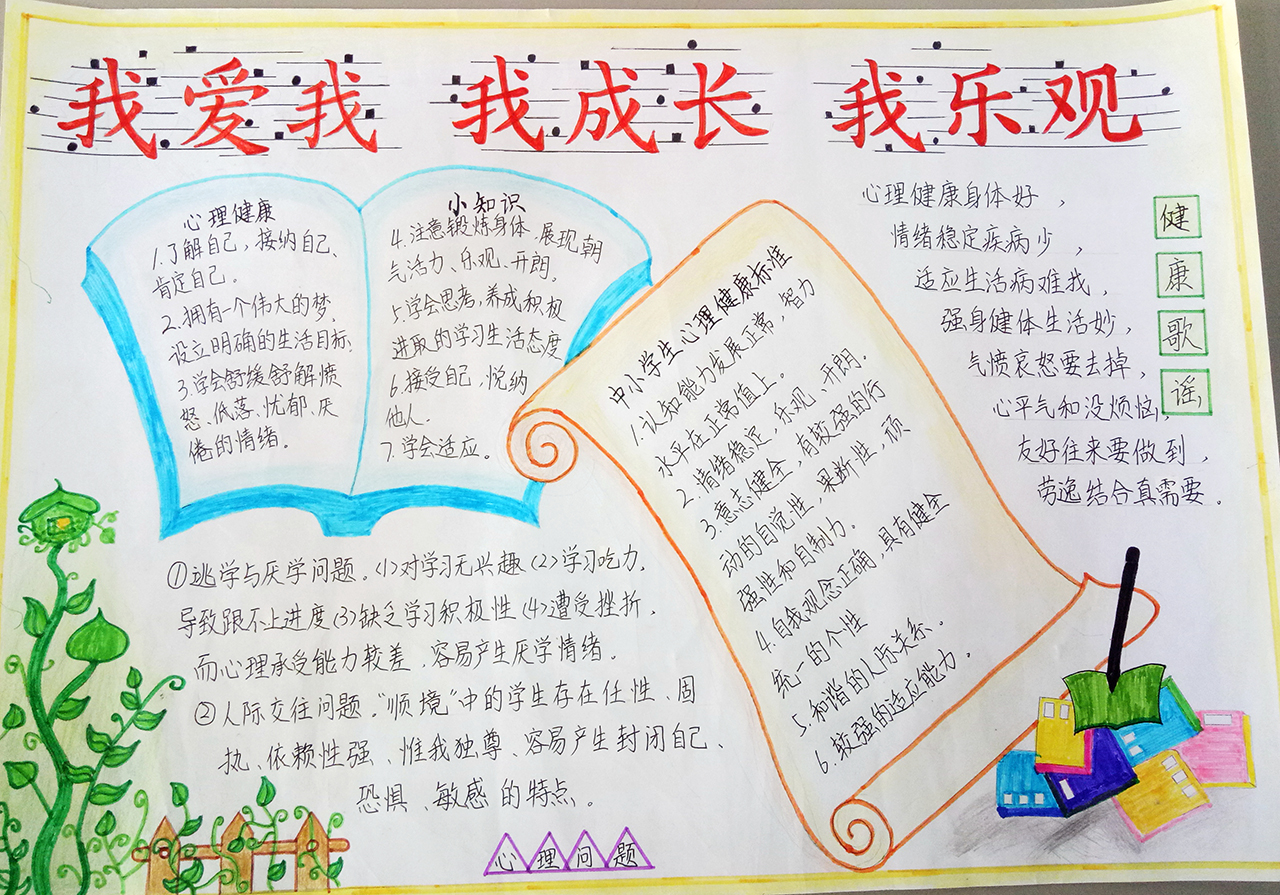 我爱我 我成长 我乐观
心理健康
1.了解自己,接纳自己、
肯定自己。
2.拥有一个伟大的梦,
设立明确的生活目标.
3.学会舒缓舒解愤
怒、低落、忧郁、厌
倦的情绪。
小知识
4.注意锻炼身体,展现朝
气活力、乐观、开朗。
5.学会思考,养成积极
进取的学习生活态度
6.接受自己,悦纳
他人.
7.学会适应。
中小学生心理健康标准
1.认知能力发展正常,智力
水平在正常值上。
2.情绪稳定,乐观、开朗。
3.意志健全,有较强的行
动的自觉性,果断性,顽
强性和自制力。
4.自我观念正确,具有健全
统一的个性
5.和谐的人际关系。
6.较强的适应能力。
健
康
歌
谣,
心理健康身体好,
情绪稳定疾病少,
适应生活病难找,
强身健体生活妙,
气愤哀怒要去掉,
心平气和没烦恼,
友好往来要做到,
劳逸结合真需要。
①逃学与厌学问题。(1)对学习无兴趣(2)学习吃力,
导致跟不上进度(3)缺乏学习积极性(4)遭受挫折,
而心理承受能力较差,容易产生厌学情绪。
②人际交往问题。“顺境”中的学生存在任性、固
执、依赖性强、惟我独尊、容易产生封闭自己、
恐惧、敏感的特点。
心理问题